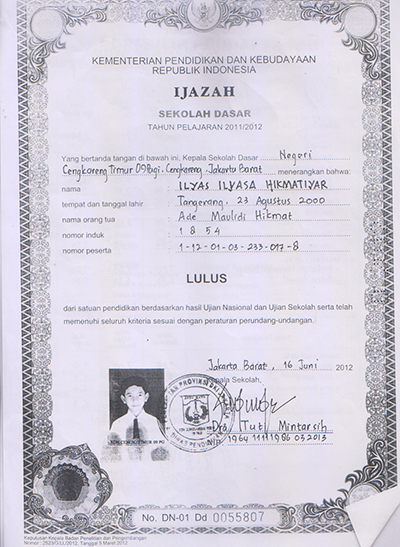 KEMENTERIAN PENDIDIKAN DAN KEBUDAYAAN
REPUBLIK INDONESIA
IJAZAH
SEKOLAH DASAR
TAHUN PELAJARAN 2011/2012
Yang bertanda tangan di bawah ini, Kepala Sekolah Dasar Negeri
Cengkareng Timur 09 Pagi, Cengkareng, Jakarta Barat menerangkan bahwa:
nama : ILYAS ILYASA HIKMATIYAR
tempat dan tanggal lahir : Tangerang, 23 Agustus 2000
nama orang tua : Ade Maulidi Hikmat
nomor induk : 1854
nomor peserta : 1-12-01-03-233-017-8
LULUS
dari satuan pendidikan berdasarkan hasil Ujian Nasional dan Ujian Sekolah serta telah
memenuhi seluruh kriteria sesuai dengan peraturan perundang-undangan.
Jakarta Barat, 16 Juni 2012
Kepala Sekolah,
Dra. Tuti Mintarsih
NIP 1964 1111 1986 03 2013
No. DN-01 Dd 0055807
Keputusan Kepala Badan Penelitian dan Pengembangan